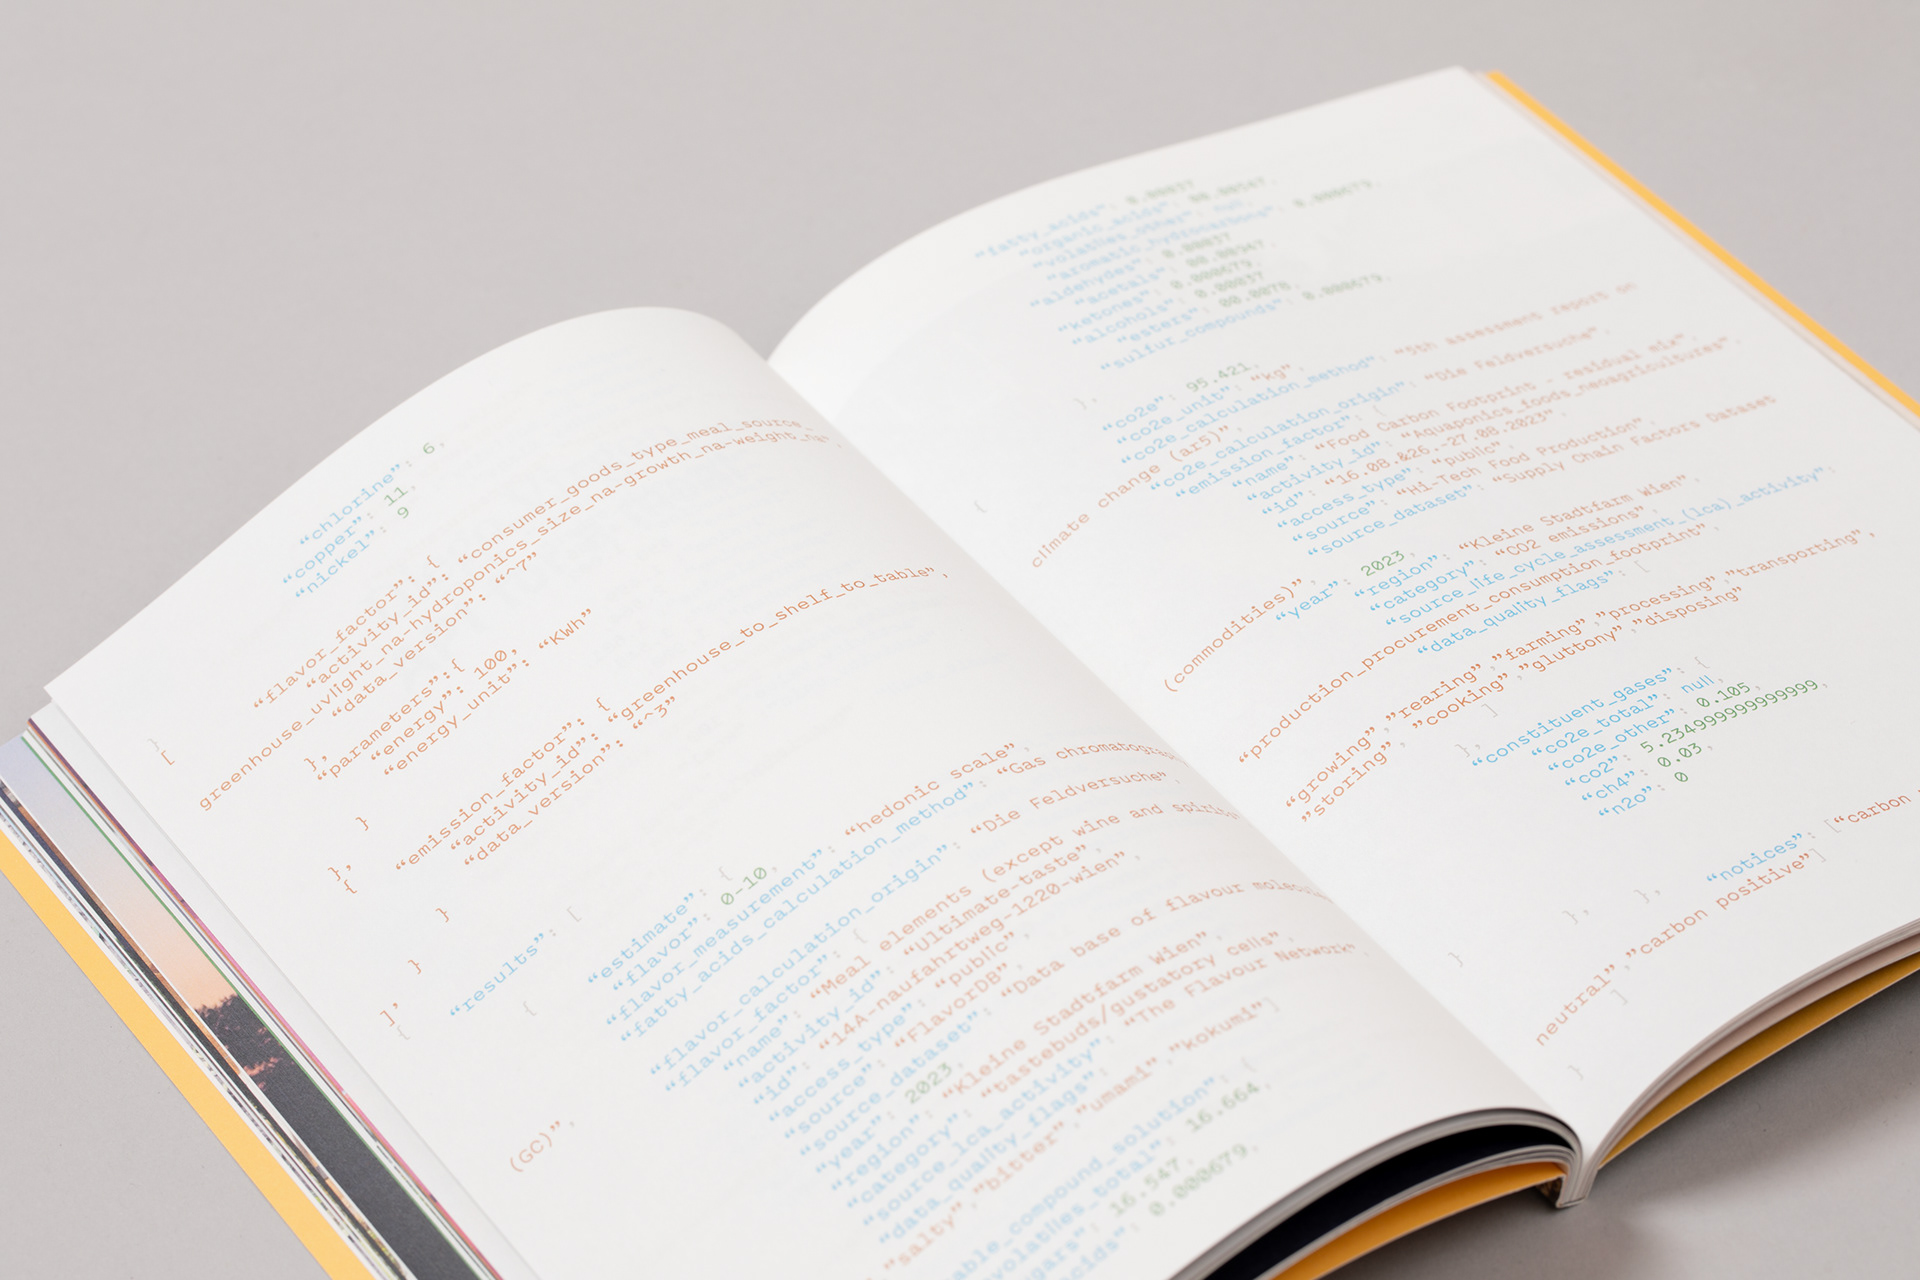 “chlorine”: 6,
“copper”: 11,
“nickel”: 9
}
[
“flavor_factor”: {
“activity_id”: “consumer_goods_type_meal_source_
greenhouse_uvlight_na-hydroponics_size_na-growth_na-weight_na”,
“data_version”: “^7”
},
“parameters”:{
“energy”: 100,
“energy_unit”: “KWh”
}
},
{
“emission-factor”: {
“activity_id”: “greenhouse_to_shelf_to_table”,
“data_version”: “^3”
}
}
],
“results”: [
{
{
“estimate”: {
“flavor”: 0-10,
“flavor_measurement”: “hedonic scale”,
“fatty_acids_calculation_method”: “Gas chromatogra
(GC)”,
“flavor_calculation_origin”: “Die Feldversuche”,
“flavor_factor”: {
“name”: “Meal elements (except wine and spirits
“activity_id”: “Ultimate-taste”,
“id”: “14A-naufahrtweg-1220-wien”,
“access_type”: “public”,
“source”: “FlavorDB”,
“source_dataset”: “Data base of flavour molecul
“year”: 2023,
“region”: “Kleine Stadtfarm Wien”,
“category”: “tastebuds/gustatory cells”,
“source_lca_activity”: “The Flavour Network”,
“data_quality_flags”:
“salty”,“bitter”,“umami”,“kokumi”]
able_compound_solution”: {
volatiles_total”: 16.664,
gars”: 16.547,
acids”: 0.000679,
“fatty_acids”: 0.00037
“organic_acids”: 00.00547,
“volatiles_other”: null,
“aromatic_hydrocarbons”: 0.000679,
“aldehydes”: 0.00037
“acetals”: 00.00947,
“ketones”: 0.000679,
“alcohols”: 0.00037
“esters”: 00.0070,
“sulfur_compounds”: 0.000679,
},
“co2e”: 95.421,
“co2e_unit”: “kg”,
“co2e_calculation_method”: “5th assessment report on
climate change (ar5)”,
“co2e_calculation_origin”: “Die Feldversuche”,
“emission_factor”: {
“name”: “Food Carbon Footprint - residual mix”
“activity_id”: “Aquaponics_foods_neoagricultures”,
“id”: “16.08.&26.-27.08.2023”,
“access_type”: “public”,
“source”: “Hi-Tech Food Production”,
“source_dataset”: “Supply Chain Factors Dataset
(commodities)”,
“year”: 2023,
“region”: “Kleine Stadtfarm Wien”,
“category”: “CO2 emissions”,
“source_life_cycle_assessment_(lca)_activity”:
“production_procurement_consumption_footprint”,
“data_quality_flags”: [
“growing”,“rearing”,“farming”,“processing”,“transporting”,
“storing”, “cooking”,“gluttony”,“disposing”
]
},
“constituent_gases”: {
“co2e_total”: null,
“co2e_other”: 0.105,
“co2”: 5.23499999999999,
“ch4”: 0.03,
“n2o”: 0
},
},
“notices”: [“carbon
neutral”,“carbon positive”]
}
]
}